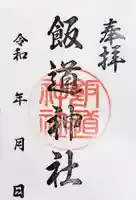 奉拝
飯道神社
令和 年 月 日
飯道
神社